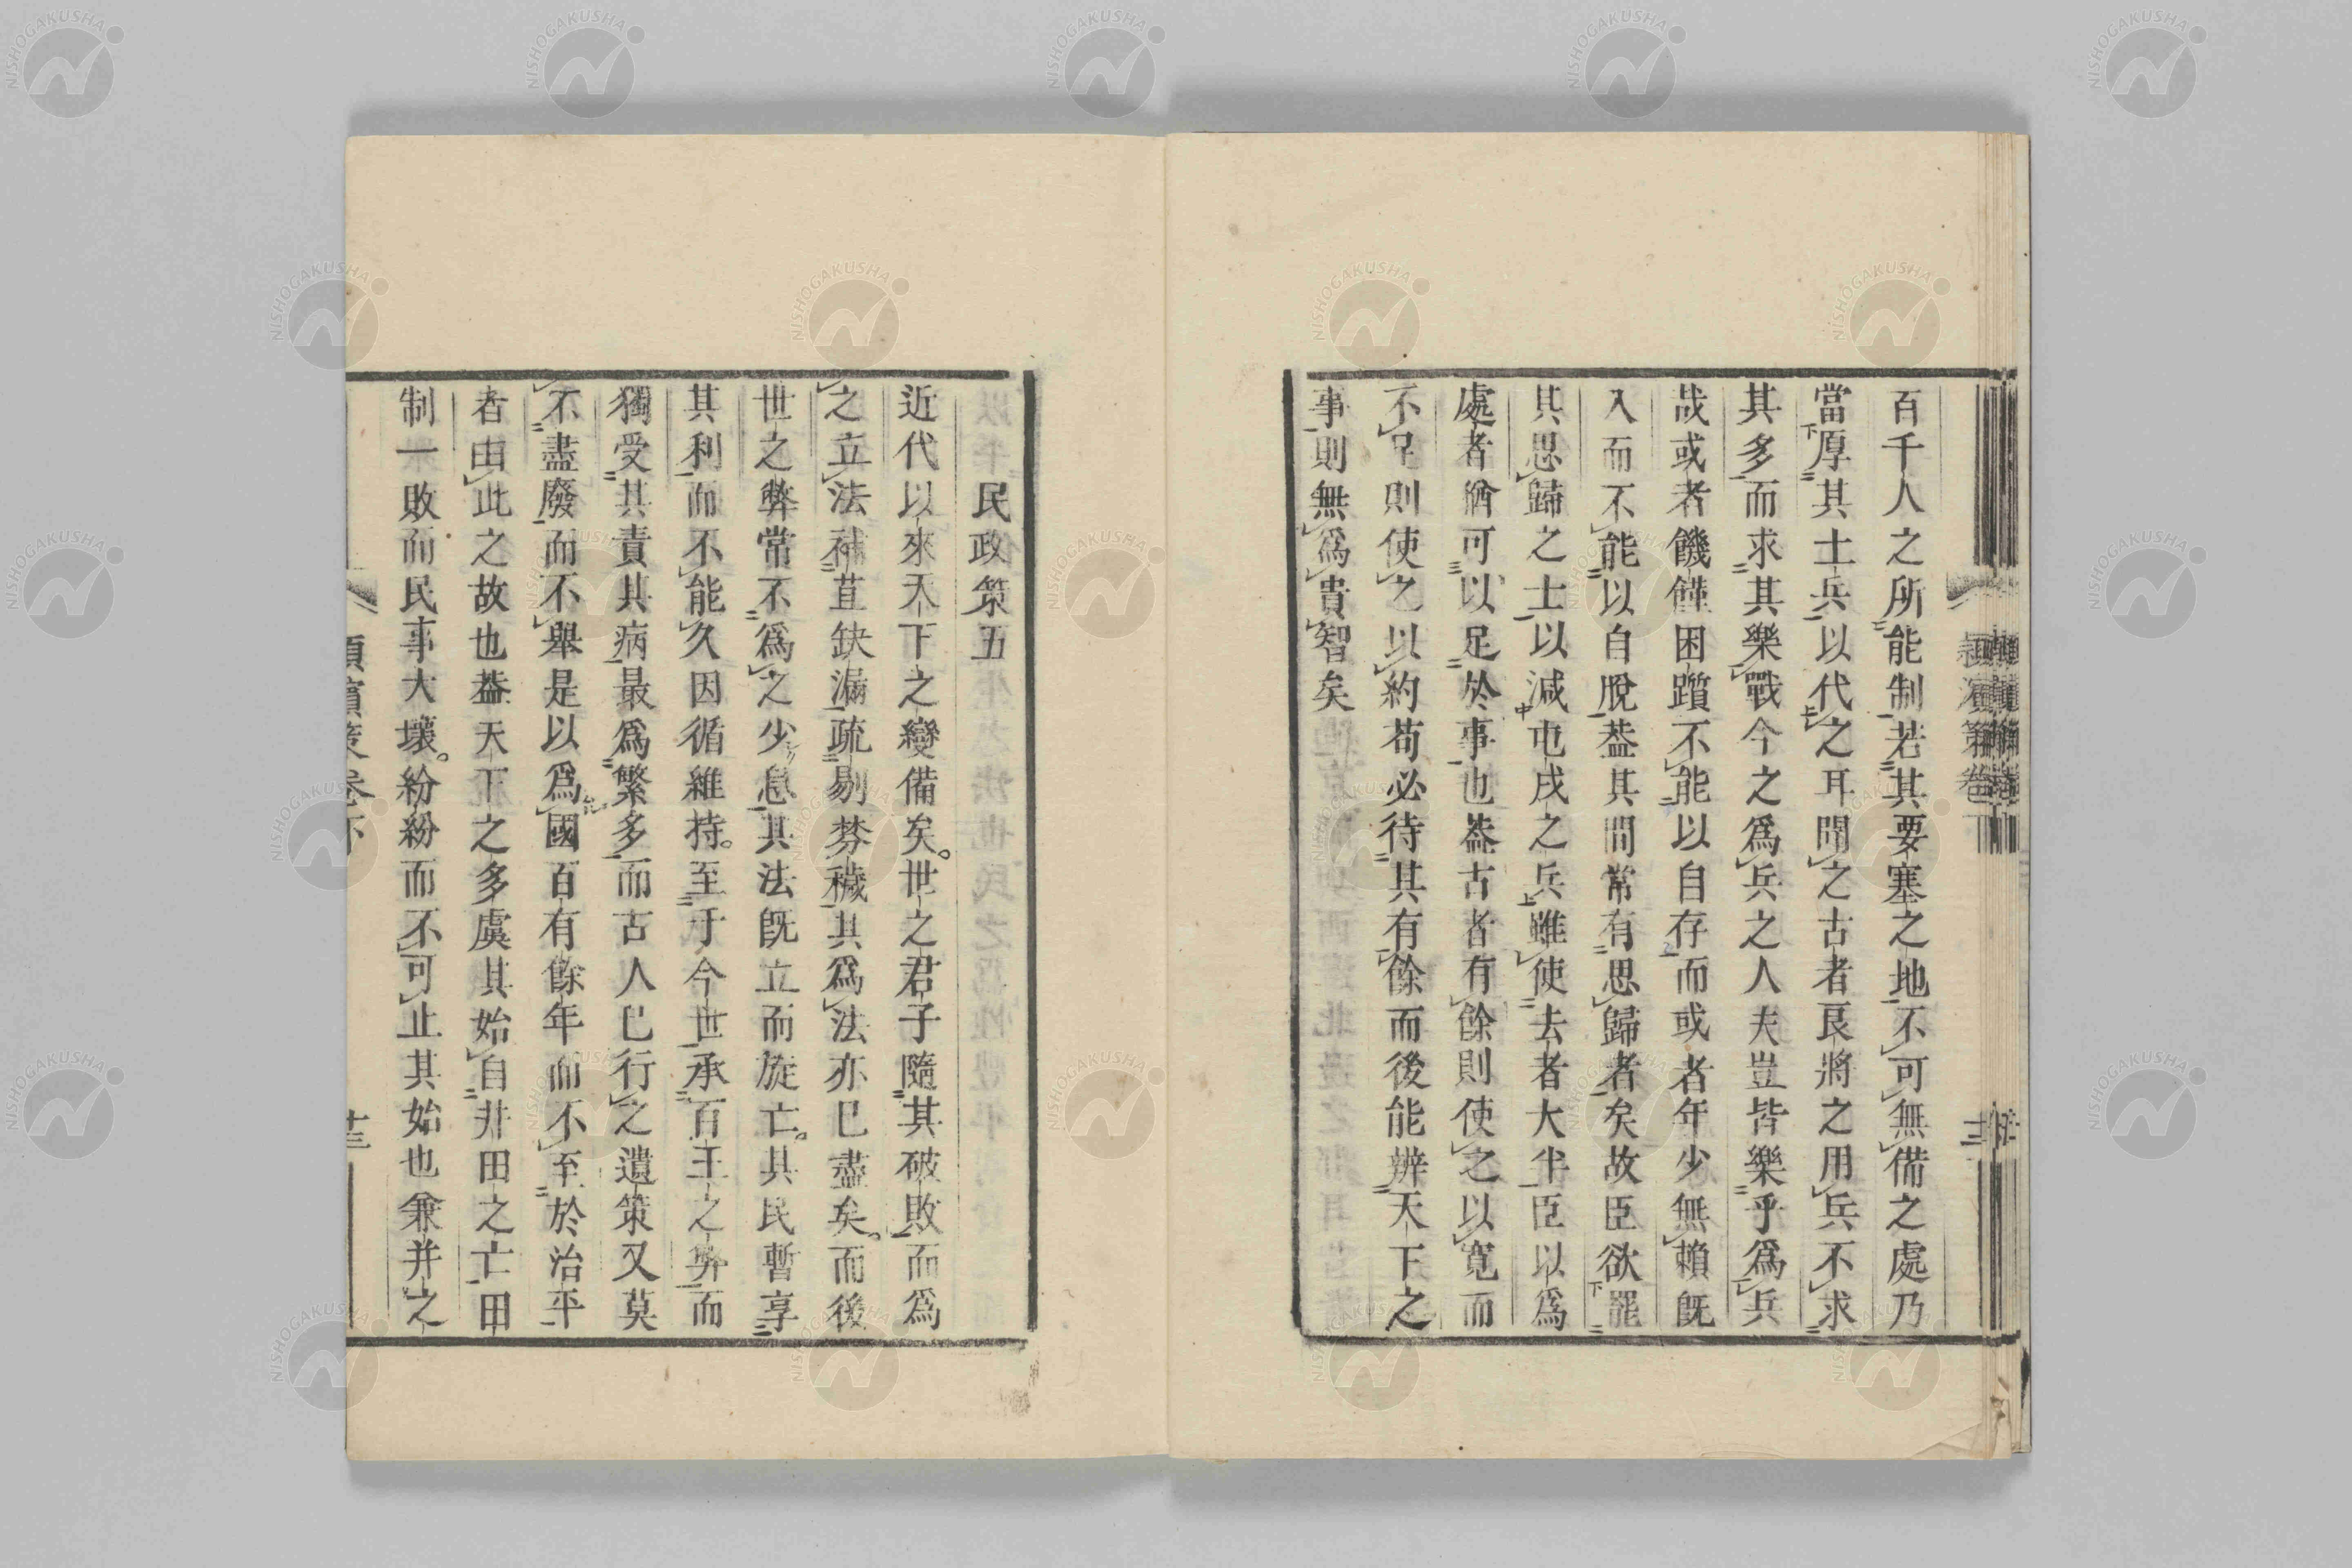 百千人之所能制若其要塞之地不可無備之處乃
當厚其士兵以代之耳聞之古者良將之用兵不求
其多而求其樂戰今之爲兵之人夫豈皆樂乎爲兵
哉或者饑饉困躓不能以自存而或者年少無賴既
入而不能以自脫葢其間常有思歸者矣故臣欲罷
其思歸之士以減屯戌之兵雖使去者大半臣以爲
處者猶可以足於事也葢古者有餘則使之以寬而
不足則使之以約苟必待其有餘而後能辨天下之
事則無爲貴智矣
民政策五
近代以來天下之變備矣。世之君子隨其破敗而爲
之立法補苴缺漏疏剔棼穢其爲法亦已盡矣。而後
世之弊常不爲之少息其法既立而旋亡。其民暫享
其利而不能久因循維持。至于今世承百王之弊而
獨受其責其病最爲繁多而古人已行之遺策又莫
不盡廢而不舉是以爲國百有餘年而不至於治平
者由此之故也葢天下之多虞其始自井田之亡田
制一敗而民事大壞。紛紛而不可止其始也兼并之
潁濱策卷下
十三
NISHOGAKUSHA